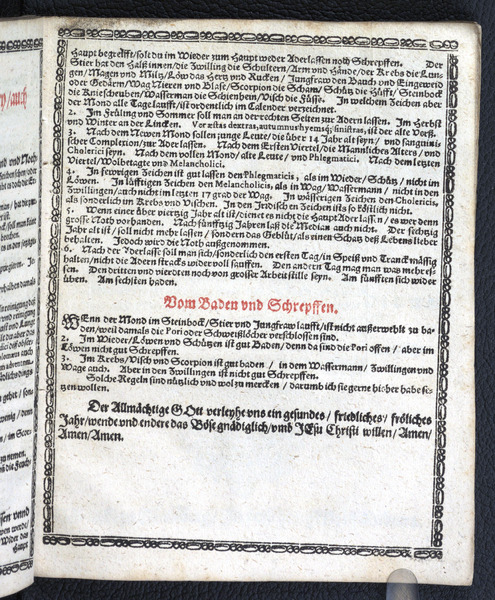 Haupt begreifft/solt du im Wieder zum Haupt weder Aderlassen noch Schrepffen. Der
Stier hat den Halß innen/die Zwilling die Schultern/Arm vnd Hände/der Krebs die Lun-
gen/Magen vnd Miltz/Löw das Hertz vnd Rucken/Jungfraw den Bauch vnd Eingeweid
oder Gedärm/Wag Nieren vnd Blase/Scorpion die Scham/Schütz die Hüfft/Steinbock
die Knieschruben/Wasserman die Schienbein/Visch die Füsse. In welchem Zeichen aber
der Mond alle Tage laufft/ist ordentlich im Calender verzeichnet.
2. Im Früling vnd Sommer soll man an der rechten Seiten zur Adern lassen. Im Herbst
vnd Winter an der Lincken. Ver æstas dextras, autumnus hyemsq; sinistras, ist der alte Verß.
3. Nach dem Newen Mond sollen junge Leute/die über 14 Jahr alt seyn/vnd sanguini-
scher Complection/zur Aderlassen. Nach dem Ersten Viertel/die Mannliches Alters/vnd
Cholerici seyn. Nach dem vollen Mond/alte Leute/vnd Phlegmatici. Nach dem letzten
Viertel/Wolbetagte vnd Melancholici.
4. In fewrigen Zeichen ist gut lassen den Phlegmaticis/als im Wieder/Schütz/nicht im
Löwen. In lüfftigen Zeichen den Melancholicis, als in Wag/Wassermann/nicht in den
Zwillingen/auch nicht im letzten 17 grad der Wag. In wässerigen Zeichen den Cholericis,
als sonderlich im Krebs vnd Vischen. In den Irdischen Zeichen ists so köstlich nicht.
5. Wenn einer über viertzig Jahr alt ist/dienet es nicht die Haupt Ader lassen/es wer denn
grosse Noth vorhanden. Nach fünfftzig Jahren laß die Median auch nicht. Der sechtzig
Jahr alt ist/soll nicht mehr lassen/sondern das Geblüt/als einen Schatz deß Lebens lieber
behalten. Jedoch wird die Noth außgenommen.
6. Nach der Aderlasse soll man sich/sonderlich den ersten Tag/in Speiß vnd Tranck mässig
halten/nicht die Adern stracks wider voll sauffen. Den andern Tag mag man was mehr es-
sen. Den dritten vnd vierdten noch von grosser Arbeit stille seyn. Am fünfften sich wider
üben. Am sechsten baden.
Vom Baden vnd Schrepffen.
WEnn der Mond im Steinbock/Stier vnd Jungfraw laufft/ist nicht außerwehlt zu ba-
den/weil damals die Pori oder Schweißlöcher verschlossen sind.
2. Im Wieder/Löwen vnd Schützen ist gut Baden/denn da sind die Pori offen/aber im
Löwen nicht gut Schrepffen.
3. Im Krebs/Visch vnd Scorpion ist gut baden/in dem Wassermann/Zwillingen vnd
Wage auch. Aber in den Zwillingen ist nicht gut Schrepffen.
Solche Regeln sind nützlich vnd wol zu mercken/darumb ich sie gerne hieher habe se-
tzen wollen.
Der Allmächtige GOtt verleyhe vns ein gesundes/friedliches/fröliches
Jahr/wende vnd endere das Böse gnädiglich/vmb JEsu Christi willen/Amen/
Amen/Amen.